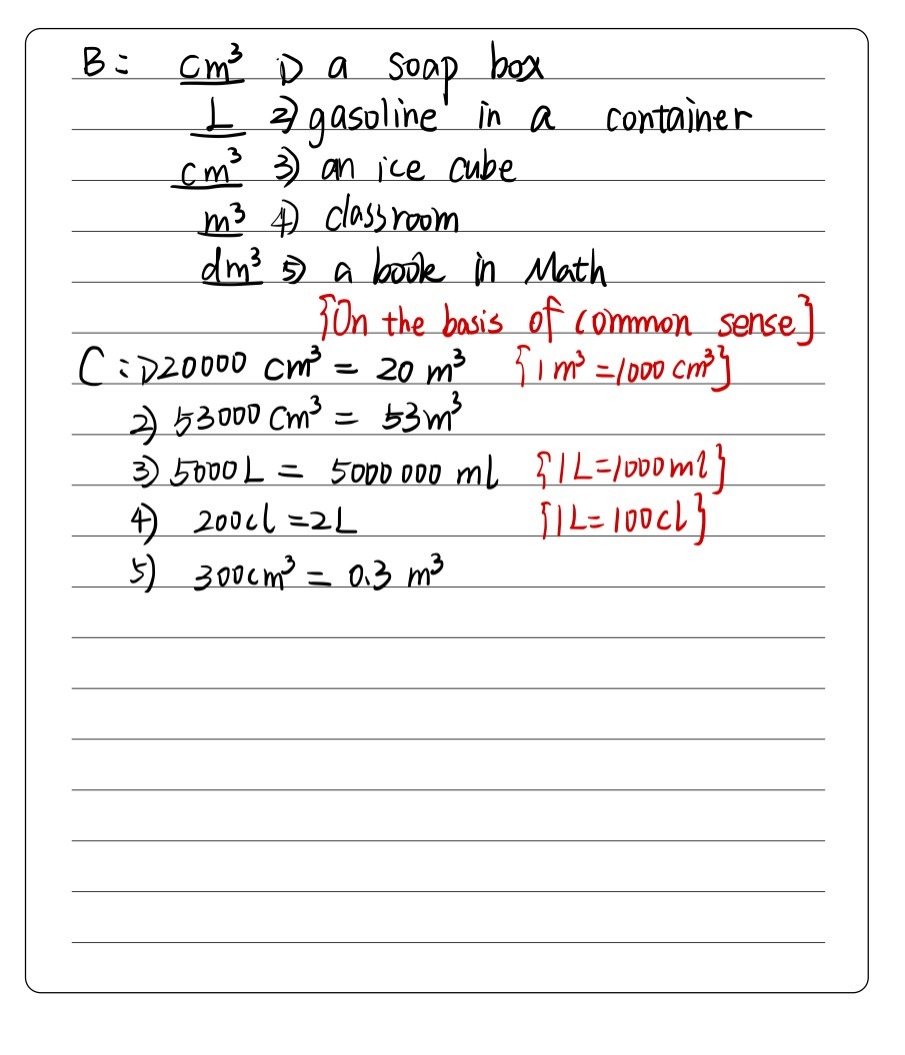 B: cm³ 1) a soap box
L 2) gasoline in a container
cm³ 3) an ice cube
m³ 4) classroom
dm³ 5) a book in Math
{On the basis of common sense}
C: 1) 20000 cm³ = 20 m³ {1 m³ = 1000 cm³}
2) 53000 cm³ = 53 m³
3) 5000 L = 5000 000 ml {1 L = 1000 ml}
4) 200cl = 2L {1L = 100cl}
5) 300cm³ = 0.3 m³